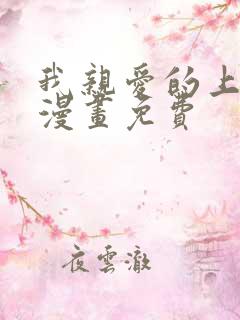 我親愛的上
漫畫免費
夜雲澈